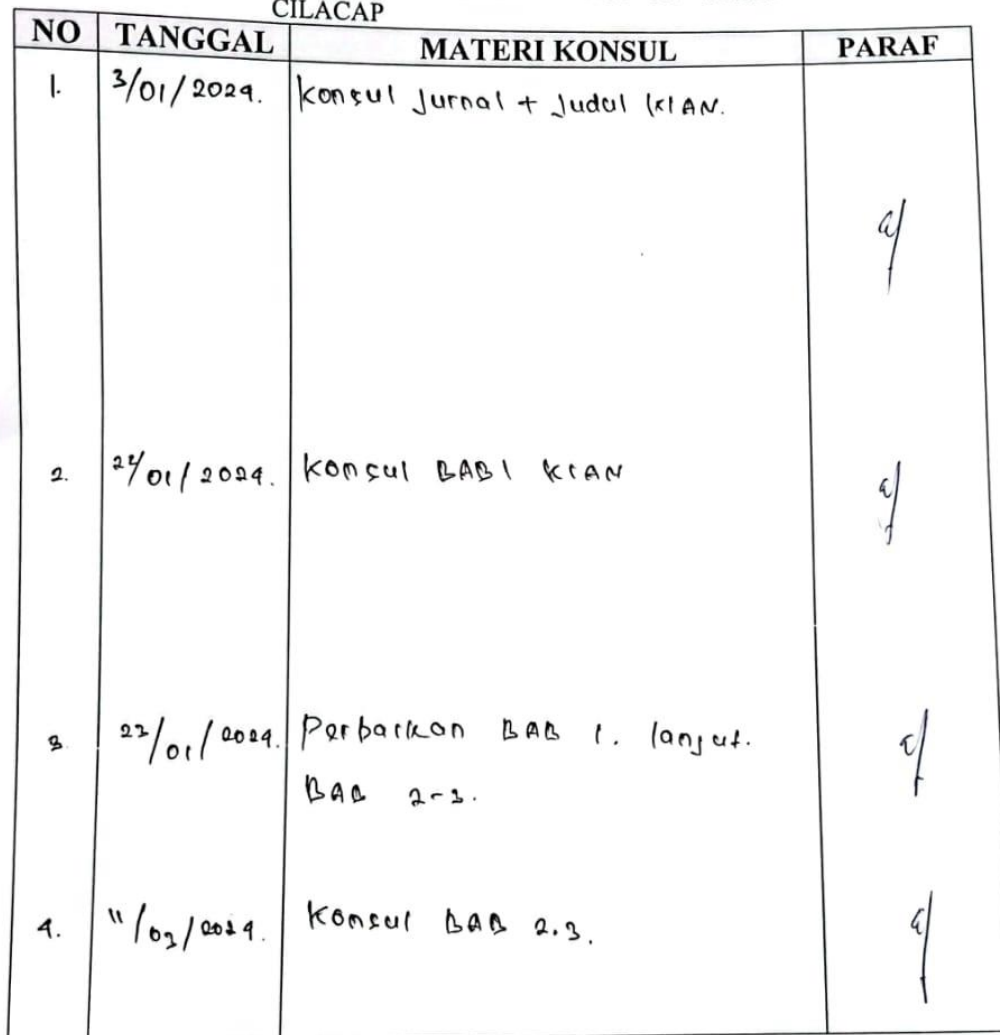 CILACAP
NO TANGGAL MATERI KONSUL PARAF
1. 3/01/2024. Konsul Jurnal + Judul KIAN.
2. 24/01/2024. Konsul BAB 1 KIAN
3. 23/01/2024. Perbaikan BAB 1. lanjut.
BAB 2-3.
4. 11/03/2024. Konsul BAB 2.3.